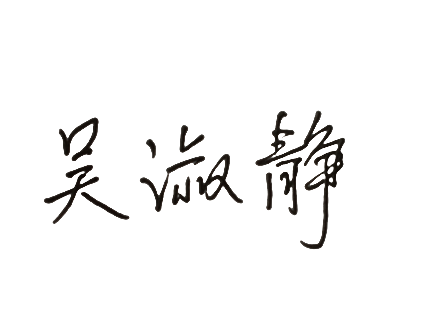 吴淑静